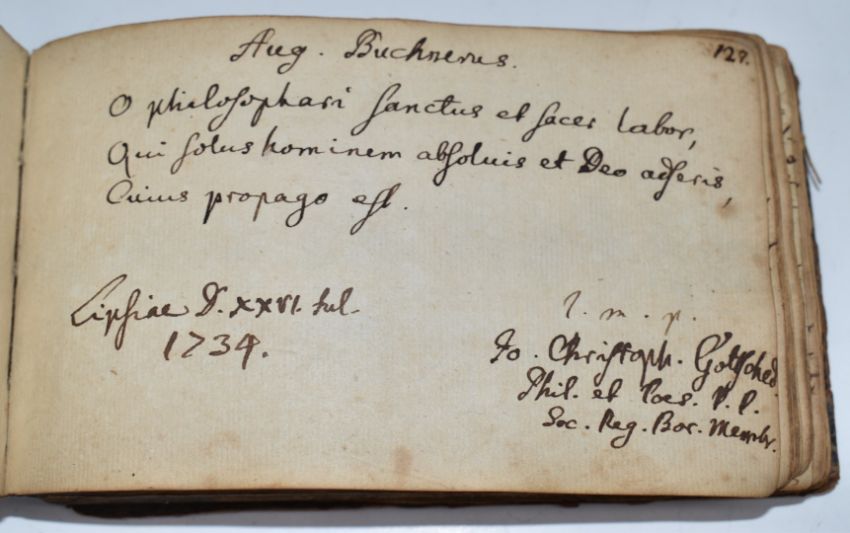 Aug. Buchnerus.
129.
O philosophari sanctus et sacer labor,
Qui solus hominem absoluis et Deo adseris,
Cuius propago est.
Lipsiae D. XXVI. Jul.
1734.
l. m. p.
Jo. Christoph. Gottsched.
Phil. et Poes. P. P.
Soc. Reg. Bor. Membr.